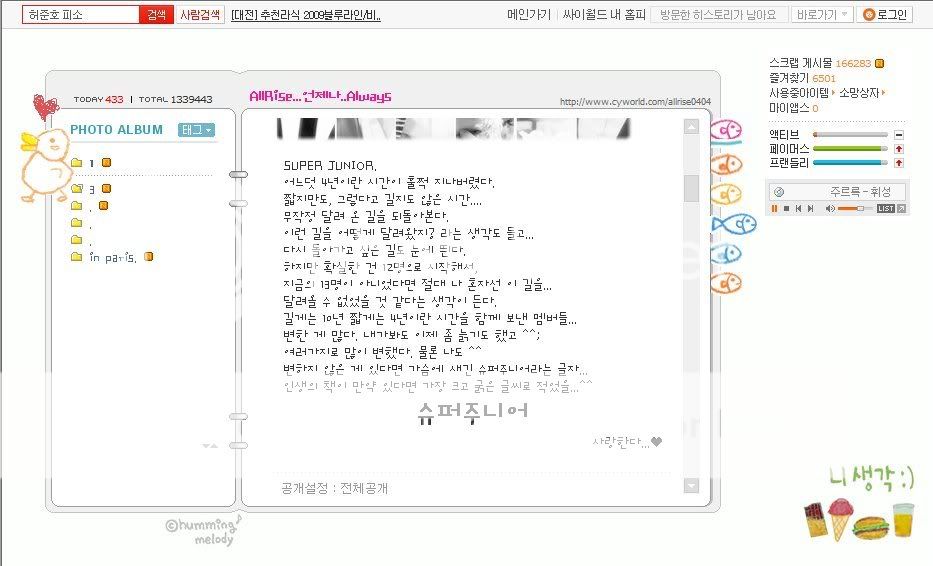 허준호 피소 검색 사람검색 [대전] 추천라식 2009블루라인/비..
메인가기 | 싸이월드 내 홈피 방문한 히스토리가 남아요 바로가기 로그인
TODAY 433 | TOTAL 1339443
AllRise...언제나..Always
http://www.cyworld.com/allrise0404
PHOTO ALBUM 태그
1
3
.
.
.
in paris.
SUPER JUNIOR.
어느덧 4년이란 시간이 훌쩍 지나버렸다.
짧지만도, 그렇다고 길지도 않은 시간....
무작정 달려 온 길을 되돌아본다.
이런 길을 어떻게 달려왔지? 라는 생각도 들고...
다시 돌아가고 싶은 길도 눈에 띈다.
하지만 확실한 건 12명으로 시작해서,
지금의 13명이 아니었다면 절대 나 혼자선 이 길을...
달려올 수 없었을 것 같다는 생각이 든다.
길게는 10년 짧게는 4년이란 시간을 함께 보낸 멤버들...
변한 게 많다. 내가봐도 이제 좀 늙기도 했고 ^^;
여러가지로 많이 변했다. 물론 나도 ^^
변하지 않은 게 있다면 가슴에 새긴 슈퍼주니어라는 글자...
인생의 책이 만약 있다면 가장 크고 굵은 글씨로 적었을...^^
슈퍼주니어
사랑한다...♥
공개설정 : 전체공개
스크랩 게시물 166283
즐겨찾기 6501
사용중아이템 소망상자
마이앱스 0
액티브
페이머스
프렌들리
주르륵 - 휘성
LIST
니 생각 :)
©humming♪
melody